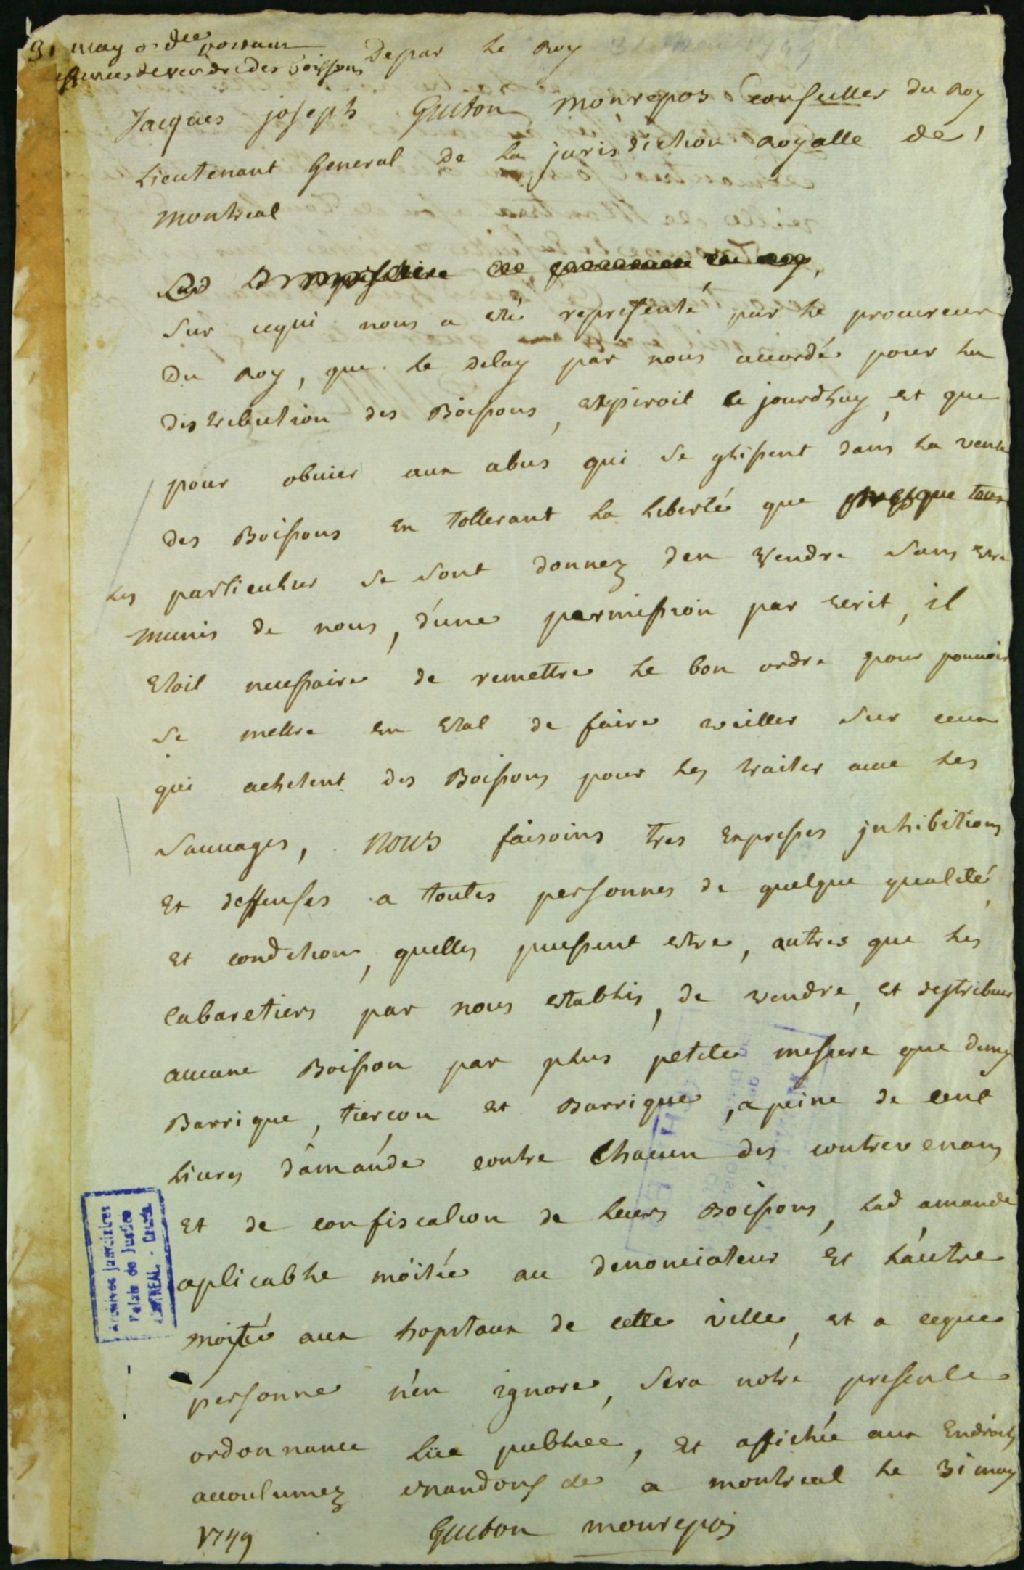 31 may ordce portant
deffences de vendre des Boissons
Depar Le Roy
Jacques joseph Guiton Monrepos Conseiller du Roy
Lieutenant General de La jurisdiction Royalle de
Montreal
Sur cequi nous a eté representé par Le procureur
Du Roy, que Le delay par nous accordé pour La
distribution des Boissons, Expiroit ce jourdhuy, et que
pour obvier aux abus qui se glissent dans La vente
des Boissons en tollerant La Liberté que presque tous
Les particulier se sont donnez den vendre sans etre
munis de nous, d'une permission par ecrit, il
Etoit necessaire de remettre Le bon ordre pour pouvoir
se mettre en Etat de faire veiller sur ceux
qui achetent des Boissons pour Les traiter avec Les
Sauvages, NOUS faisoins tres Expresses jnhibitions
Et deffenses a toutes personnes de quelque qualité
et condition, quelles puissent estre, autres que Les
Cabaretiers par nous establis, de vendre, et destribuer
aucune Boisson par plus petite mesure que demy
Barrique, tiercon et Barrique, a peine de cent
Livres d'amande contre Chacun des contrevenans
et de confiscation de Leurs Boissons, Lad amande
aplicable moitié au denonciateur et L'autre
moitié aux hopitaux de cette ville, et a ceque
personne n'en ignore, sera notre presente
ordonnance Lue publiée, et affichée aux Endroits
accoutumez mandons &c a montreal Le 31 may
1749 Guiton monrepos
Archives judiciaires
Palais de Justice
MONTREAL - Canada